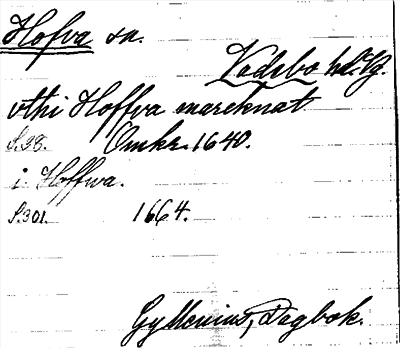 Hofva sn.
Vadsbo hd. Vg.
vthi Hoffva marcknat
S.38. Omkr. 1640.
i Hoffwa.
S.301. 1664.
Gyllenius, Dagbok.